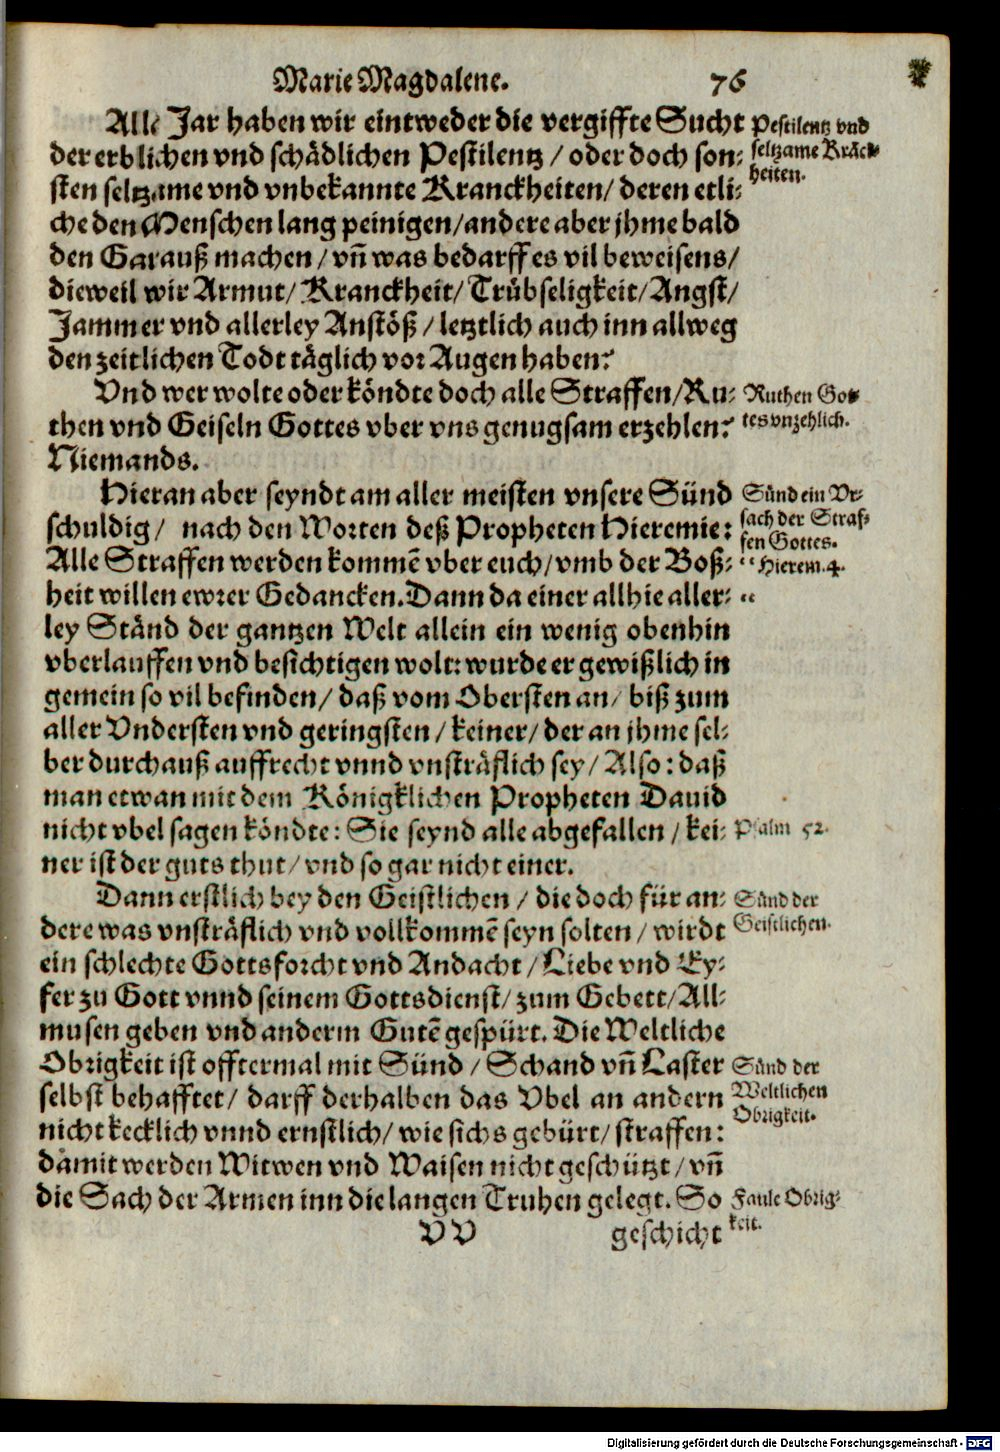 Marie Magdalene. 76
Alle Jar haben wir eintweder die vergiffte Sucht
der erblichen vnd schädlichen Pestilentz / oder doch son⸗
sten seltzame vnd vnbekannte Kranckheiten / deren etli⸗
che den Menschen lang peinigen / andere aber jhme bald
den Garauß machen / vn̄ was bedarff es vil beweisens /
dieweil wir Armut / Kranckheit / Trübseligkeit / Angst /
Jammer vnd allerley Anstöß / letztlich auch inn allweg
den zeitlichen Todt täglich vor Augen haben?
Pestilentz vnd
seltzame Kräck⸗
heiten.
Vnd wer wolte oder köndte doch alle Straffen / Ru⸗
then vnd Geiseln Gottes vber vns genugsam erzehlen?
Niemands.
Ruthen Got⸗
tes vnzehlich.
Hieran aber seyndt am aller meisten vnsere Sünd
schuldig / nach den Worten deß Propheten Hieremie:
Alle Straffen werden kommē vber euch / vmb der Boß⸗
heit willen ewrer Gedancken. Dann da einer allhie aller⸗
ley Ständ der gantzen Welt allein ein wenig obenhin
vberlauffen vnd besichtigen wolt: wurde er gewißlich in
gemein so vil befinden / daß vom Obersten an / biß zum
aller Vndersten vnd geringsten / keiner / der an jhme sel⸗
ber durchauß auffrecht vnnd vnsträflich sey / Also: daß
man etwan mit dem Königklichen Propheten Dauid
nicht vbel sagen köndte: Sie seynd alle abgefallen / kei⸗
ner ist der guts thut / vnd so gar nicht einer.
Sünd ein Vr⸗
sach der Straf⸗
fen Gottes.
“ Hierem. 4.
“
Psalm 52.
Dann erstlich bey den Geistlichen / die doch für an⸗
dere was vnsträflich vnd vollkommē seyn solten / wirdt
ein schlechte Gottsforcht vnd Andacht / Liebe vnd Ey⸗
fer zu Gott vnnd seinem Gottsdienst / zum Gebett / All⸗
musen geben vnd anderm Gutē gespürt. Die Weltliche
Obrigkeit ist offtermal mit Sünd / Schand vn̄ Laster
selbst behafftet / darff derhalben das Vbel an andern
nicht kecklich vnnd ernstlich / wie sichs gebürt / straffen:
damit werden Witwen vnd Waisen nicht geschützt / vn̄
die Sach der Armen inn die langen Truhen gelegt. So
Sünd der
Geistlichen.
Sünd der
Weltlichen
Obrigkeit.
Faule Obrig⸗
keit.
VV geschicht
Digitalisierung gefördert durch die Deutsche Forschungsgemeinschaft - DFG